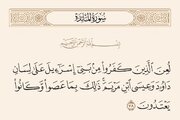 سُورَةُ المَائِدَةِ
بِسْمِ اللَّهِ الرَّحْمَٰنِ الرَّحِيمِ
لُعِنَ الَّذِينَ كَفَرُوا مِنْ بَنِي إِسْرَٰٓءِيلَ عَلَىٰ لِسَانِ
دَاوُۥدَ وَعِيسَى ابْنِ مَرْيَمَ ذَٰلِكَ بِمَا عَصَوا وَّكَانُوا
يَعْتَدُونَ ﴿٧٨﴾